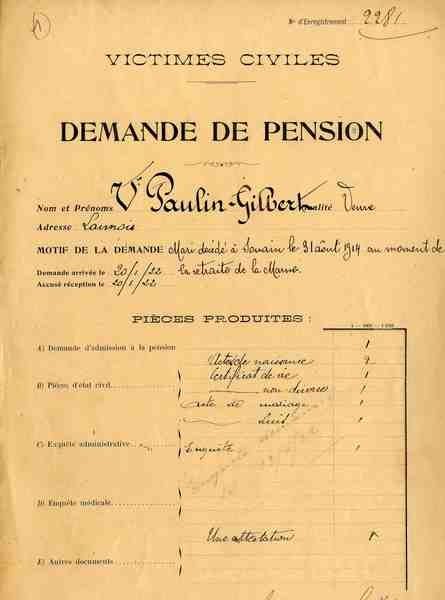 N° d'Enregistrement 2281
VICTIMES CIVILES
DEMANDE DE PENSION
Nom et Prénoms Vve Paulin-Gilbert Qualité Veuve
Adresse Launois
MOTIF DE LA DEMANDE Mari décédé à Souain le 31 août 1914 au moment de
Demande arrivée le 20/1/22 la retraite de la Marne.
Accusé réception le 20/1/22
PIÈCES PRODUITES :
A) Demande d'admission à la pension 1
Actes de naissance 2
Certificat de vie 1
B) Pièces d'état civil non divorce 1
acte de mariage 1
décès 1
C) Enquête administrative Enquête 1
D) Enquête médicale
Une attestation
E) Autres documents